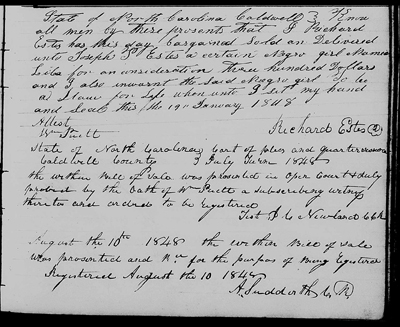 State of North Carolina Caldwell Know
all men by these presents that I Richard
Estes has this day bargained sold an Delivered
unto Joseph Estes a certain negro girl named
for an consideration three hundred Dollars
and I also warrant the said negro girl to be
a Slave for life when unto I set my hand
and Seal this the 19th January 1848
Attest
Wm
Richard Estes
State of North Carolina Court of pleas and quarter sessions
Caldwell County July Term 1848
the within bill of sale was presented in Open Court & duly
proven by the Oath of Wm a subscribing witness
thereto and ordered to be registered
Test Newland Clk
August the 10th 1848 the within Bill of Sale
was presented and for the purpos of being
Registered August the 10 1848
A. Sudderth